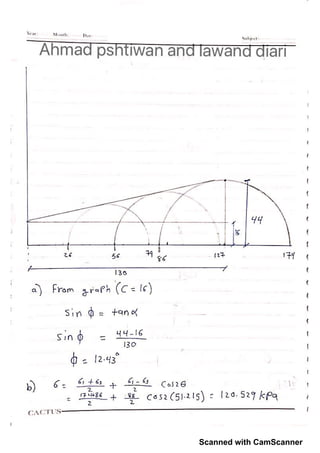 Year: Month: Day: Subject:
Ahmad pshtiwan and lawand diari
44
16
26 56 79 86 127 174
130
a) From graph (C = 16)
Sin ϕ = tan α
Sin ϕ = 44-16 / 130
ϕ = 12.43°
b) 6 = 61 + 63 / 2 + 61 - 63 / 2 Cos2θ
= 174+86 / 2 + 88 / 2 Cos2(51.215) = 120.529 kPa
CACTUS
Scanned with CamScanner